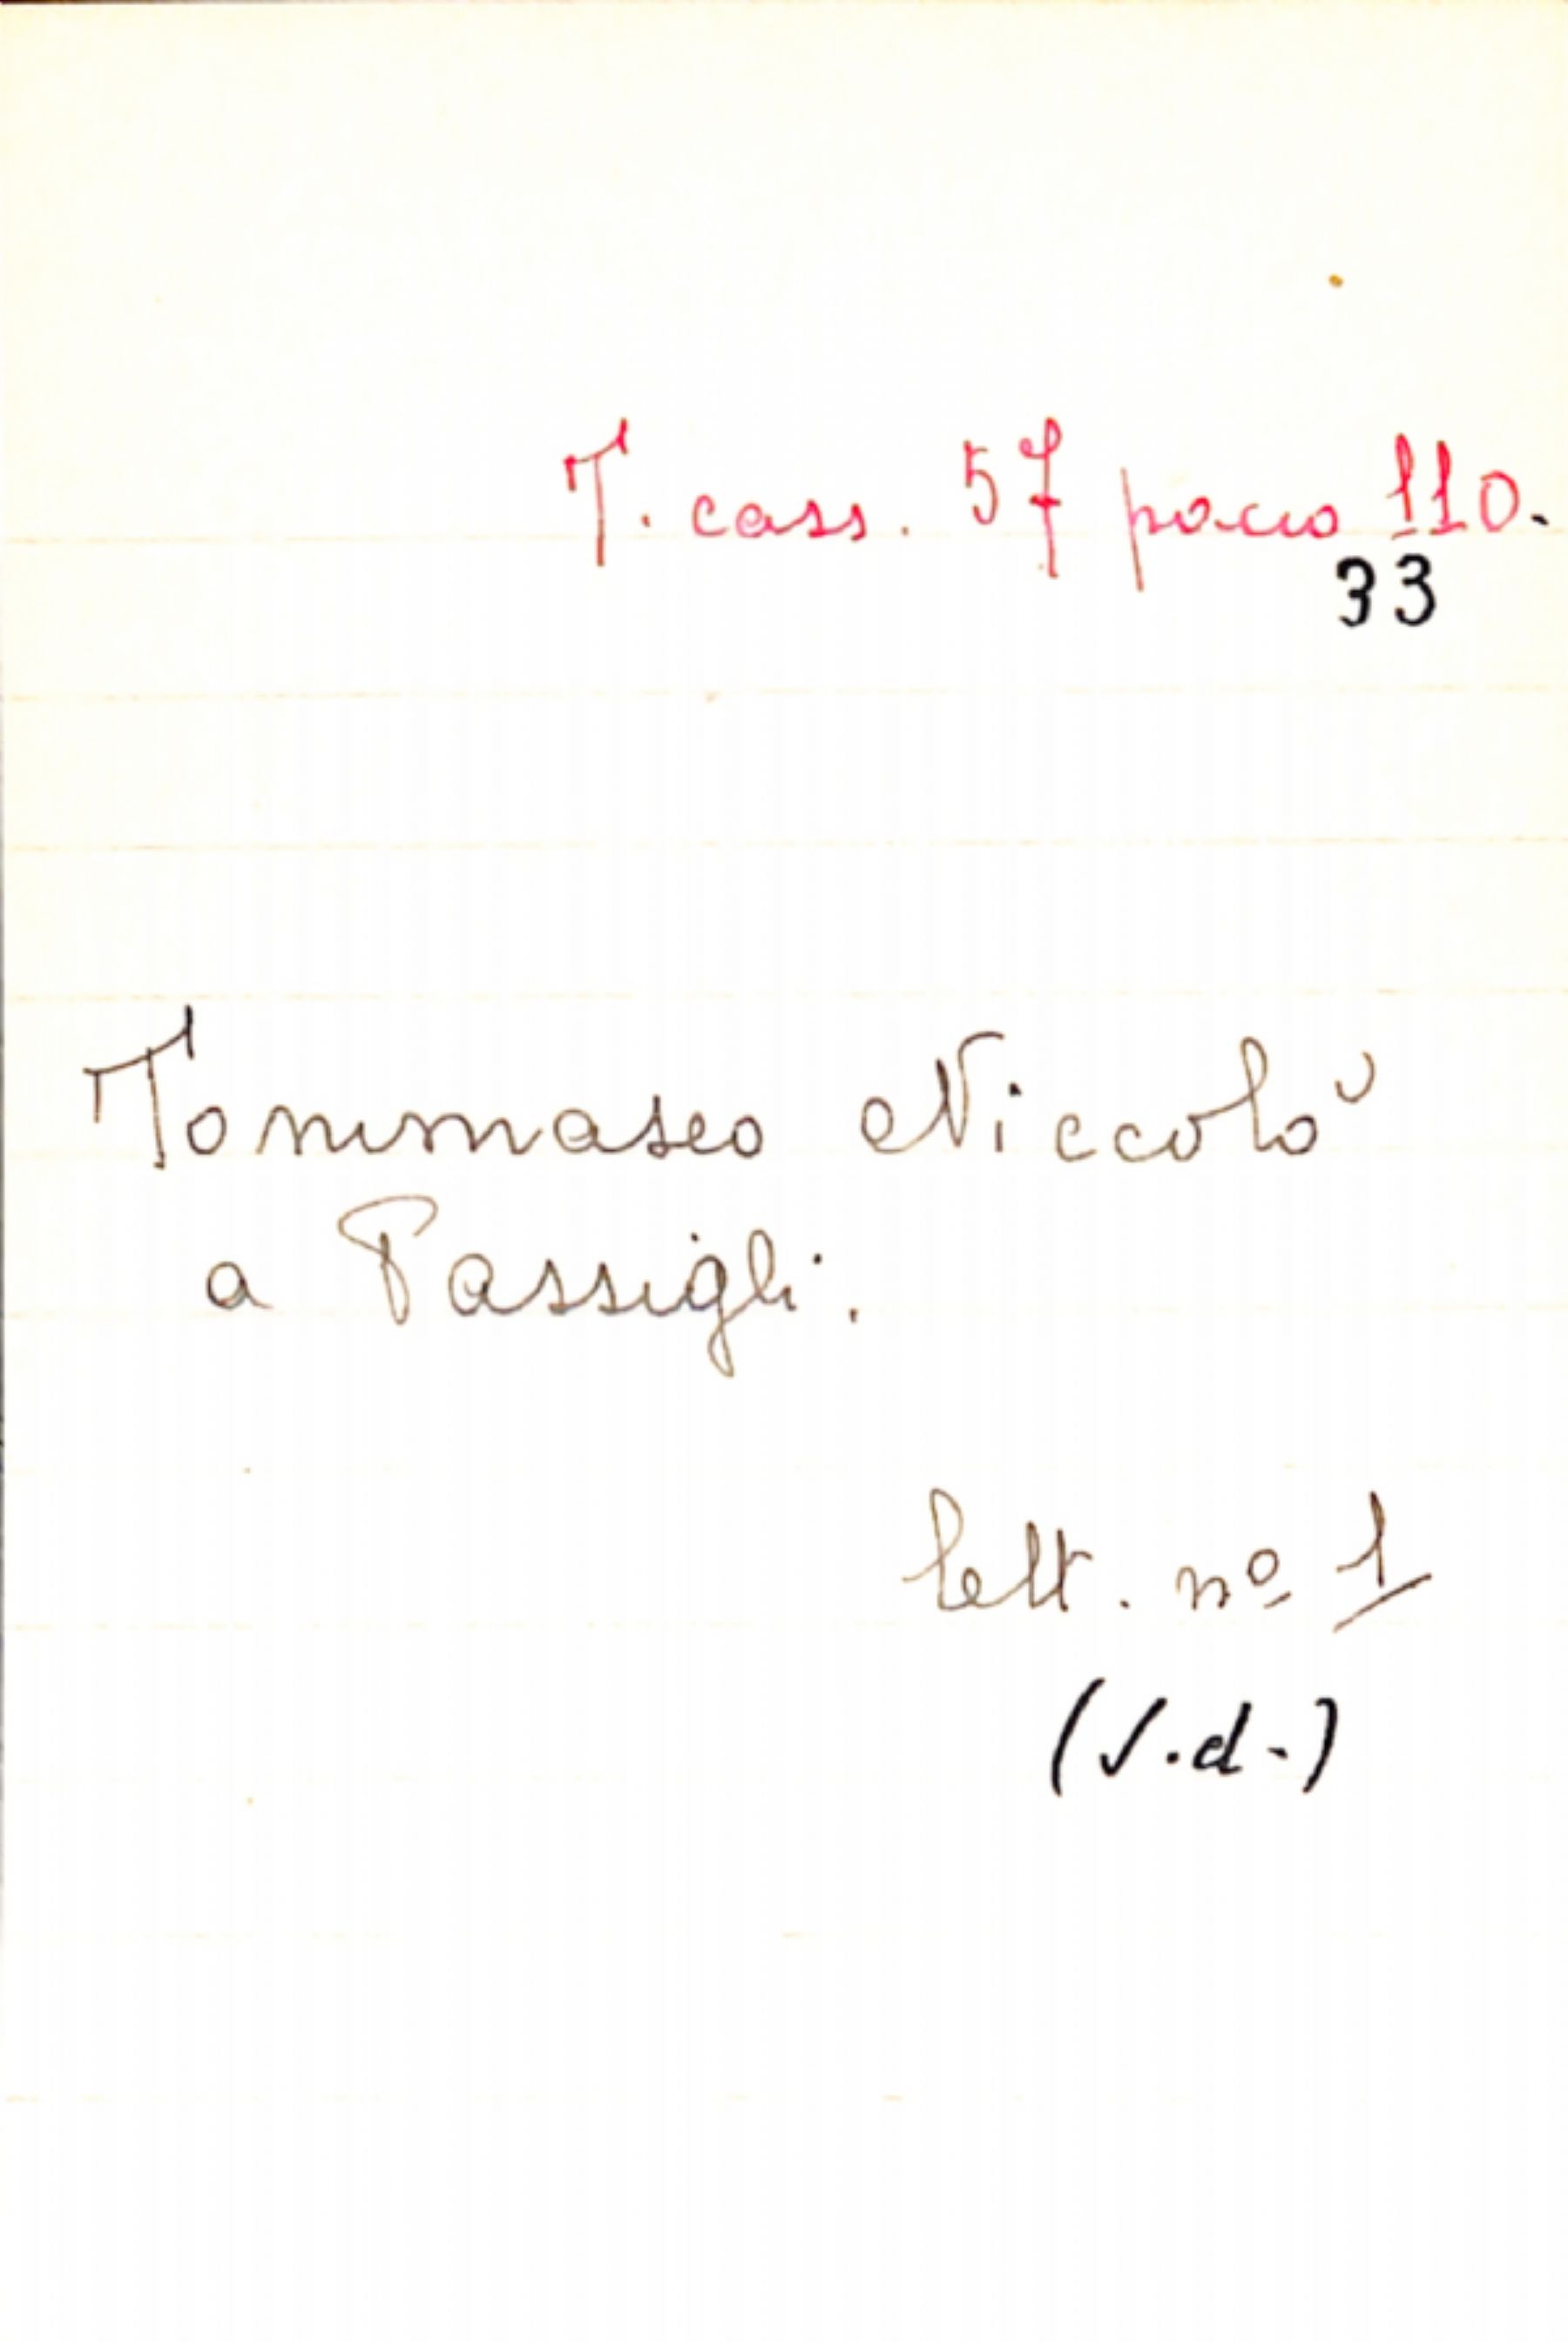 T. cass. 57 pacco 110.
33
Tommaseo Niccolò
a Passigli.
lett. nº 1
(s.d.)